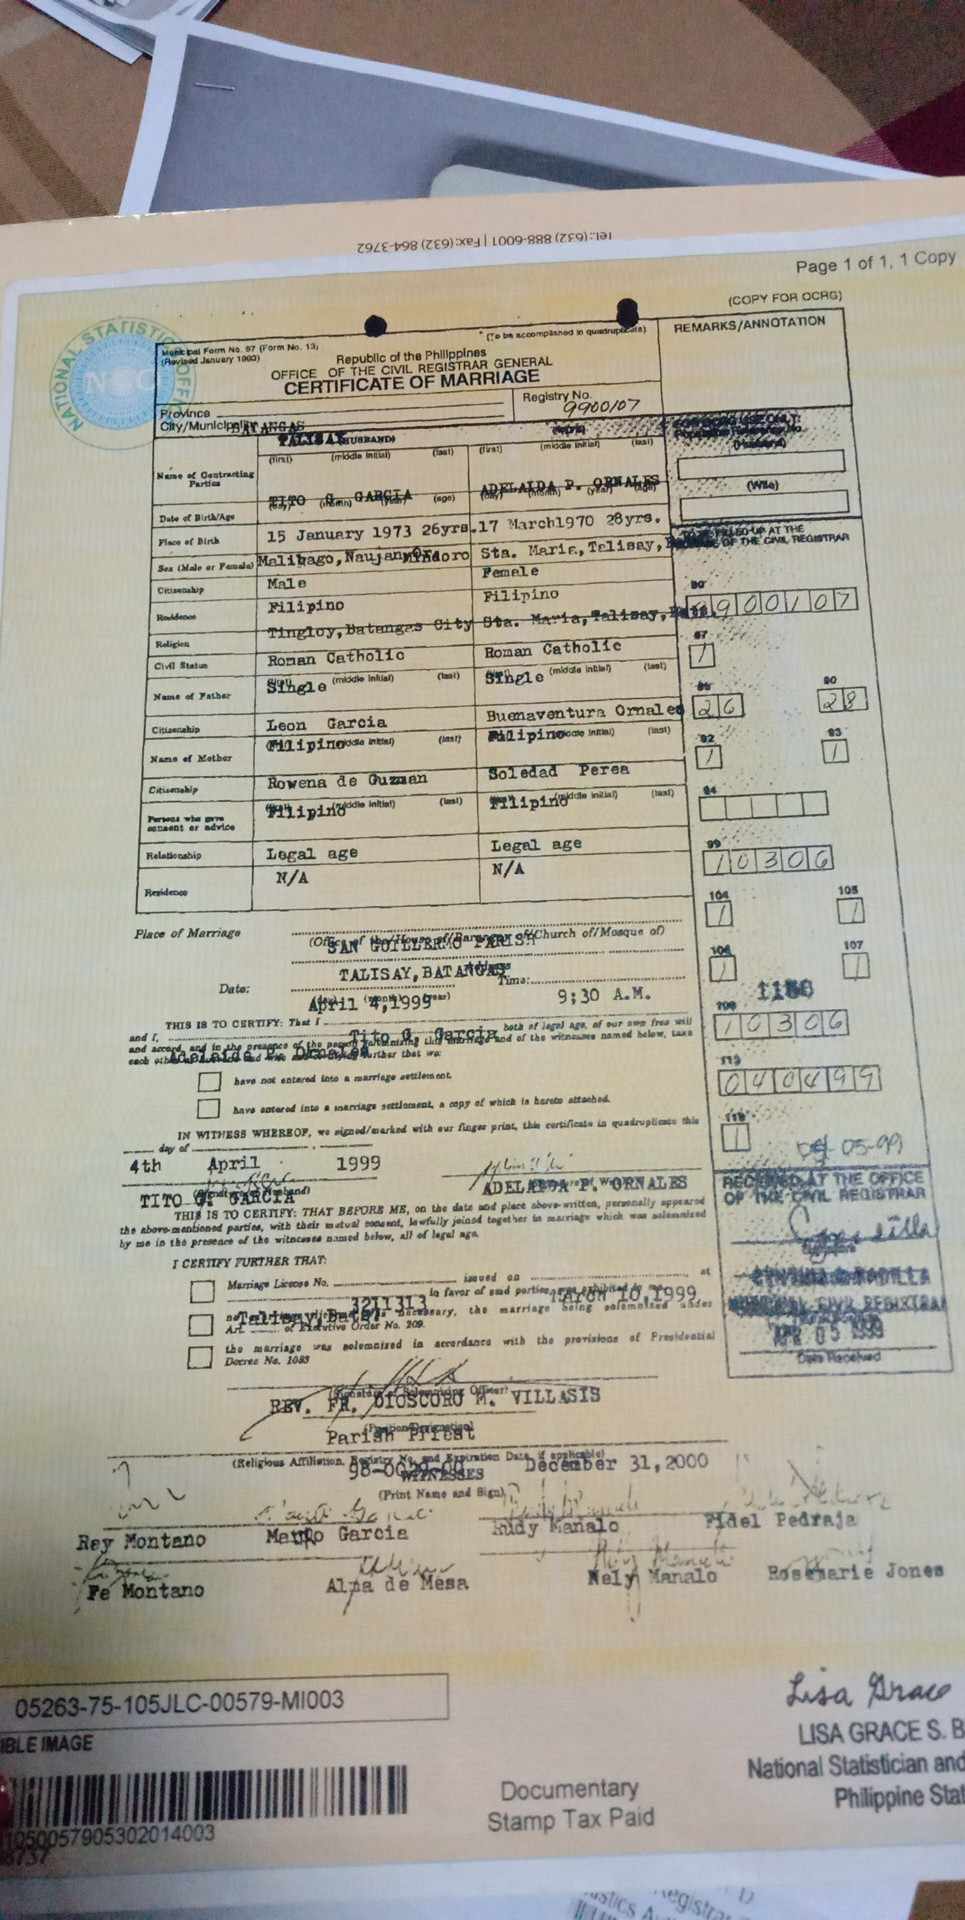 Tel.:(632) 888-6001 | Fax:(632) 864-3762
Page 1 of 1, 1 Copy
(COPY FOR OCRG)
NATIONAL STATISTICS OFFICE
Municipal Form No. 97 (Form No. 13)
(Revised January 1993)
(To be accomplished in quadruplicate)
REMARKS/ANNOTATION
Republic of the Philippines
OFFICE OF THE CIVIL REGISTRAR GENERAL
CERTIFICATE OF MARRIAGE
Province
Registry No.
9900107
City/Municipality
BATANGAS
TALISAY
(HUSBAND)
(first) (middle initial) (last) (first) (middle initial) (last)
(Husband)
Name of Contracting
Parties
TITO G. GARCIA
ADELAIDA P. ORNALES
(Wife)
Date of Birth/Age
(day) (month) (year) (age) (day) (month) (year) (age)
Place of Birth
15 January 1973 26yrs. 17 March1970 28yrs.
TO BE FILLED-UP AT THE
OFFICE OF THE CIVIL REGISTRAR
Sex (Male or Female)
Malibago, Naujan, Or. Mindoro
Sta. Maria, Talisay,
Citizenship
Male
Female
Residence
Filipino
Filipino
9900107
Tingloy, Batangas City
Sta. Maria, Talisay, Bats.
Religion
Roman Catholic
Roman Catholic
87
1
Civil Status
Single
(middle initial) (last)
Single
(middle initial) (last)
Name of Father
Leon Garcia
Buenaventura Ornales
26
90
28
Citizenship
Filipino
(last)
Filipino
(last)
92
1
93
1
Name of Mother
Rowena de Guzman
Soledad Perea
Citizenship
Filipino
(middle initial) (last)
Filipino
(middle initial) (last)
94
Persons who gave
consent or advice
Legal age
Legal age
99
10306
Relationship
N/A
N/A
Residence
104
1
105
1
Place of Marriage
(Office of the/House of/Barangay of/Church of/Mosque of)
SAN GUILLERMO PARISH
106
1
107
1
TALISAY, BATANGAS
Date:
(day) (month) (year)
April 4,1999
Time:
9;30 A.M.
1150
10306
THIS IS TO CERTIFY: That I
Tito G. Garcia
both of legal age, of our own free will
and I,
Adelaida P. Ornales
and accord, and in the presence of the person solemnizing this marriage and of the witnesses named below, take
each other as husband and wife and certifying further that we:
113
040499
have not entered into a marriage settlement.
have entered into a marriage settlement, a copy of which is hereto attached.
118
1
IN WITNESS WHEREOF, we signed/marked with our finger print, this certificate in quadruplicate this
day of
4th April 1999
05-99
(Signature of Husband)
TITO G. GARCIA
ADELAIDA P. ORNALES
RECEIVED AT THE OFFICE
OF THE CIVIL REGISTRAR
THIS IS TO CERTIFY: THAT BEFORE ME, on the date and place above-written, personally appeared
the above-mentioned parties, with their mutual consent, lawfully joined together in marriage which was solemnized
by me in the presence of the witnesses named below, all of legal age.
I CERTIFY FURTHER THAT:
Marriage License No.
issued on
at
3211313
March 10,1999
in favor of said parties, was exhibited to me.
Talisay, Bats.
no marriage license was necessary, the marriage being solemnized under
Art. of Executive Order No. 209.
the marriage was solemnized in accordance with the provisions of Presidential
Decree No. 1083
MUNICIPAL CIVIL REGISTRAR
APR 05 1999
Date Received
(Signature of Solemnizing Officer)
REV. FR. DIOSCORO M. VILLASIS
(Position/Designation)
Parish Priest
(Religious Affiliation, Registry No. and Expiration Date, if applicable)
December 31,2000
WITNESSES
(Print Name and Sign)
Rey Montano
Mauro Garcia
Rudy Manalo
Fidel Pedraja
Fe Montano
Alma de Mesa
Nely Manalo
Rosemarie Jones
05263-75-105JLC-00579-MI003
IBLE IMAGE
1050057905302014003
Documentary
Stamp Tax Paid
Lisa Grace
LISA GRACE S. B
National Statistician and
Philippine Stat